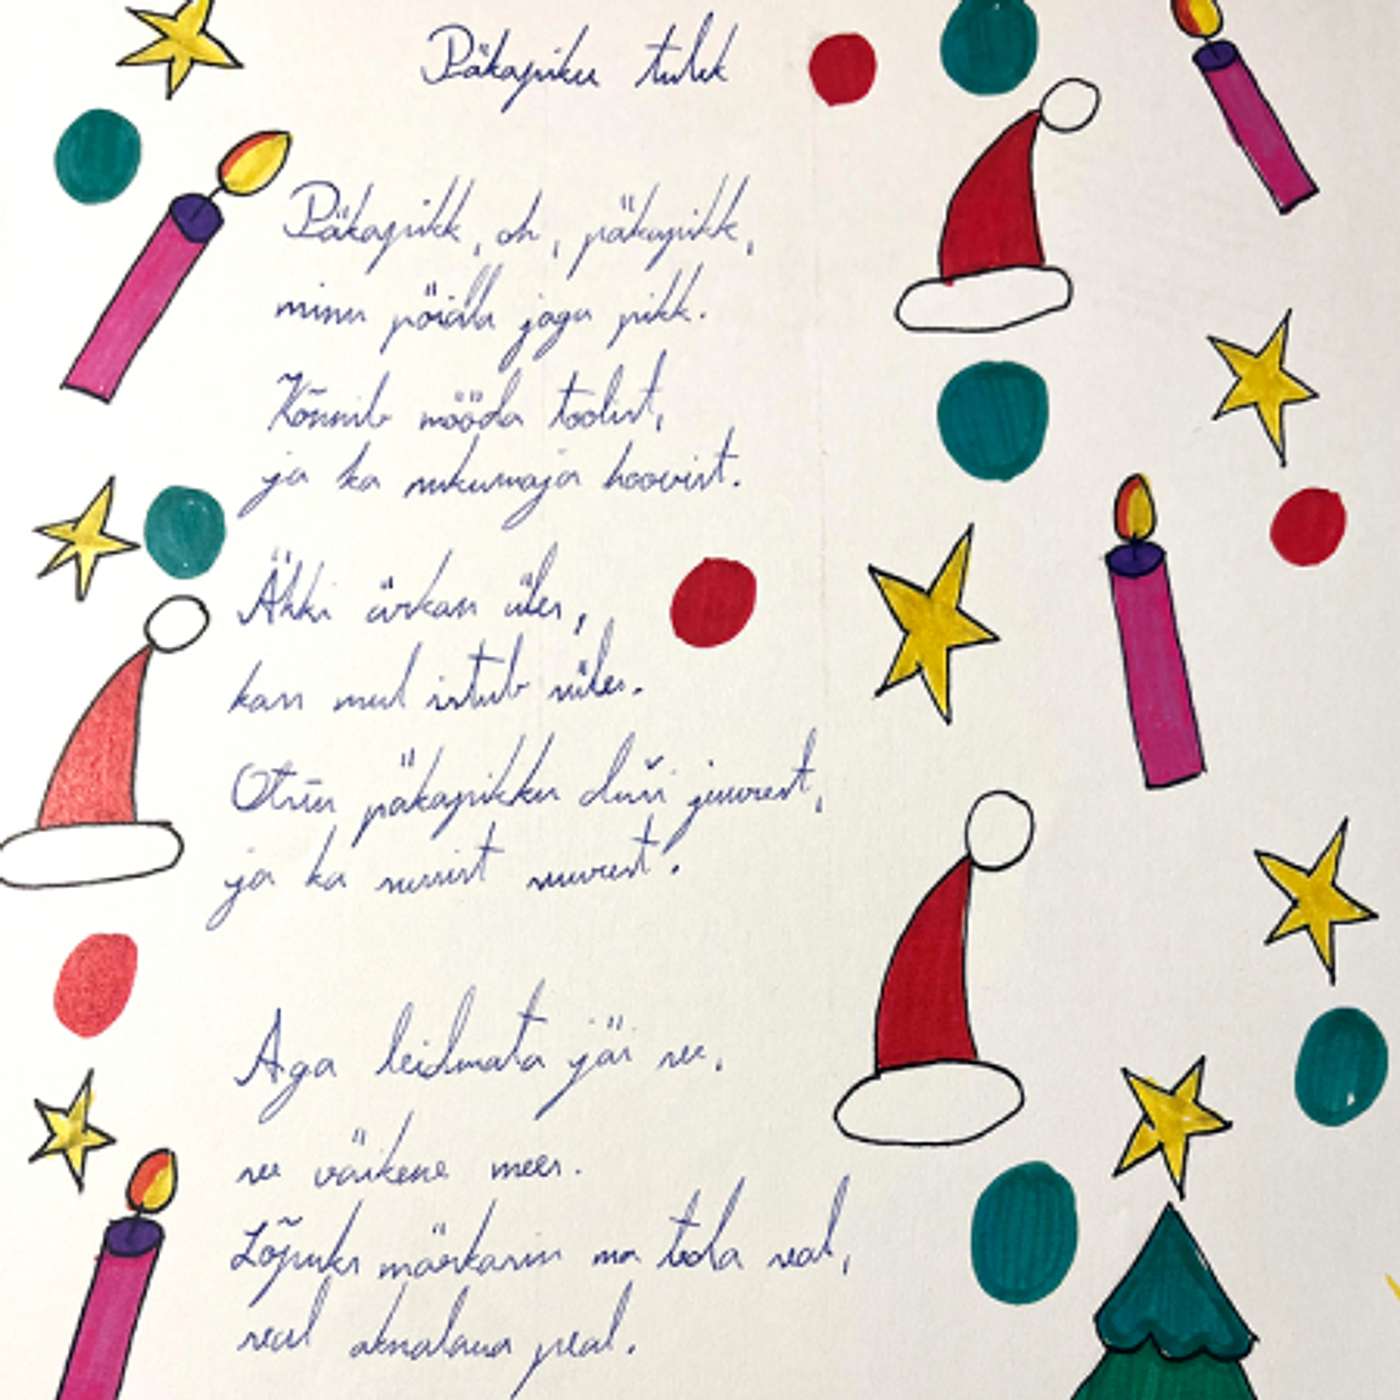 Päkapiku tulek
Päkapikk, oh, päkapikk,
minu pöidla jagu pikk.
Kõnnib mööda toolist,
ja ka nukumaja hoovist.
Äkki ärkan üles,
kas mul istub süles.
Otsin päkapikku duši juurest,
ja ka sussist suurest.
Aga leidmata jäi see,
see väikene mees.
Lõpuks märkasin ma teda seal,
seal aknalaua peal.